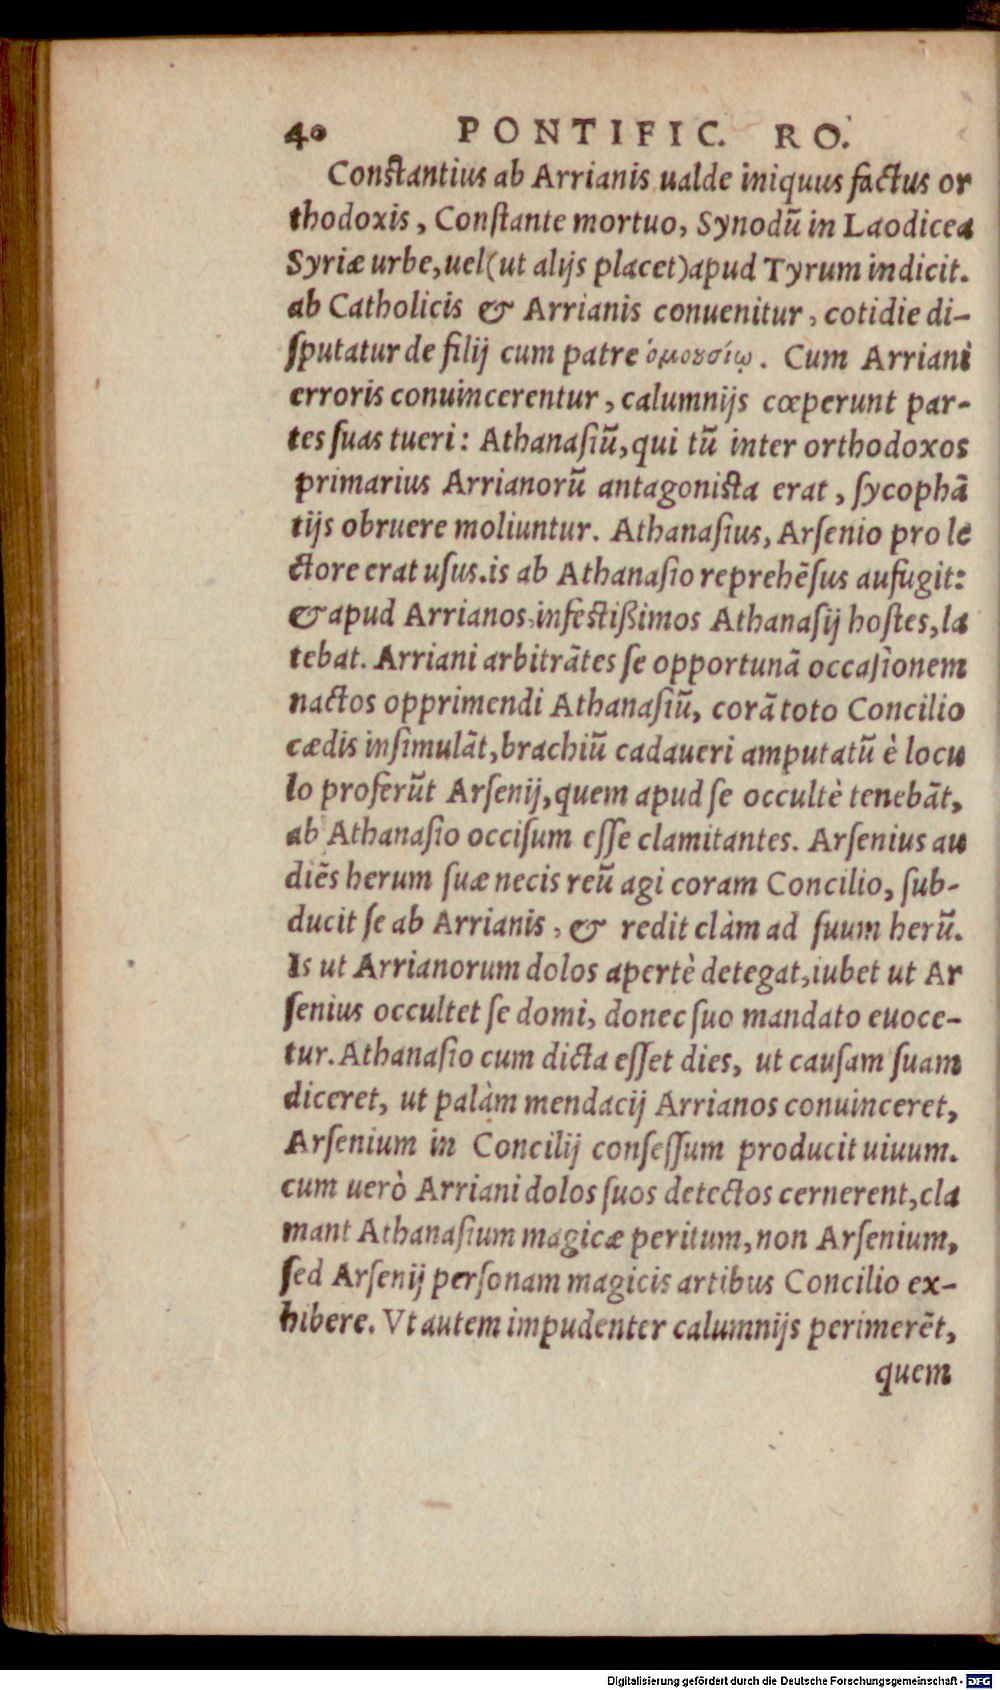 40 PONTIFIC. RO.
Constantius ab Arrianis ualde iniquus factus or
thodoxis, Constante mortuo, Synodū in Laodicea
Syriæ urbe, uel (ut alijs placet) apud Tyrum indicit.
ab Catholicis & Arrianis conuenitur, cotidie di-
sputatur de filij cum patre ὁμουσίῳ. Cum Arriani
erroris conuincerentur, calumnijs cœperunt par-
tes suas tueri: Athanasiū, qui tū inter orthodoxos
primarius Arrianorū antagonista erat, sycophā
tijs obruere moliuntur. Athanasius, Arsenio pro le
ctore erat usus. is ab Athanasio reprehēsus aufugit:
& apud Arrianos, infestißimos Athanasij hostes, la
tebat. Arriani arbitrātes se opportunā occasionem
nactos opprimendi Athanasiū, corā toto Concilio
cædis insimulāt, brachiū cadaueri amputatū è locu
lo proferūt Arsenij, quem apud se occultè tenebāt,
ab Athanasio occisum esse clamitantes. Arsenius au
diēs herum suæ necis reū agi coram Concilio, sub-
ducit se ab Arrianis, & redit clàm ad suum herū.
Is ut Arrianorum dolos apertè detegat, iubet ut Ar
senius occultet se domi, donec suo mandato euoce-
tur. Athanasio cum dicta esset dies, ut causam suam
diceret, ut palàm mendacij Arrianos conuinceret,
Arsenium in Concilij consessum producit uiuum.
cum uerò Arriani dolos suos detectos cernerent, cla
mant Athanasium magicæ peritum, non Arsenium,
sed Arsenij personam magicis artibus Concilio ex-
hibere. Vt autem impudenter calumnijs perimerēt,
quem
Digitalisierung gefördert durch die Deutsche Forschungsgemeinschaft - DFG